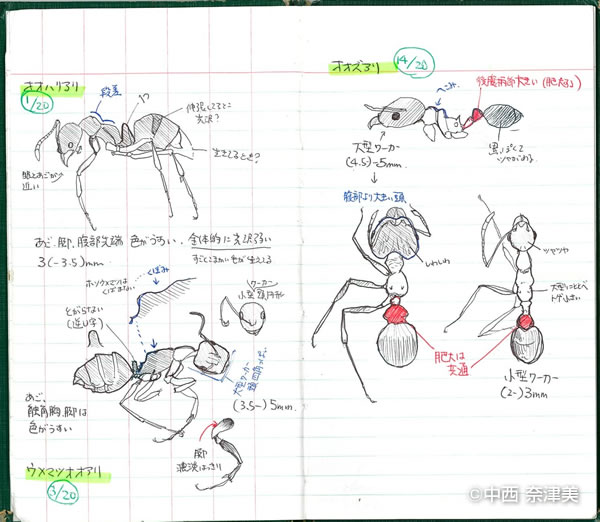 オオハリアリ
1/20
段差
伸張してるとこ
光沢?
生きてるとき?
眼とあごが
近い
あご、脚、腹部先端 色がうすい、全体的に光沢弱い
3(-3.5)mm
すごくこまかい毛が生えてる
ホソウメマツは
くぼまない
くぼみ
とがらない
(逆U字)
ワーカー
小型 頭 円形
大型ワーカー
頭 四角っぽい
(3.5-)5mm
あご、
触角、胸、脚は
色がうすい
脚
濃淡はっきり
ウメマツオオアリ
3/20
オオズアリ
14/20
へこみ
後腹柄節 大きい(肥大する)
大型ワーカー
(4.5)-5mm
黒っぽくて
ツヤがある
腹部より大きい頭
しわしわ
ツヤツヤ
大型にくらべ
トゲ小さい
肥大は
共通
小型ワーカー
(2-)3mm
©中西 奈津美